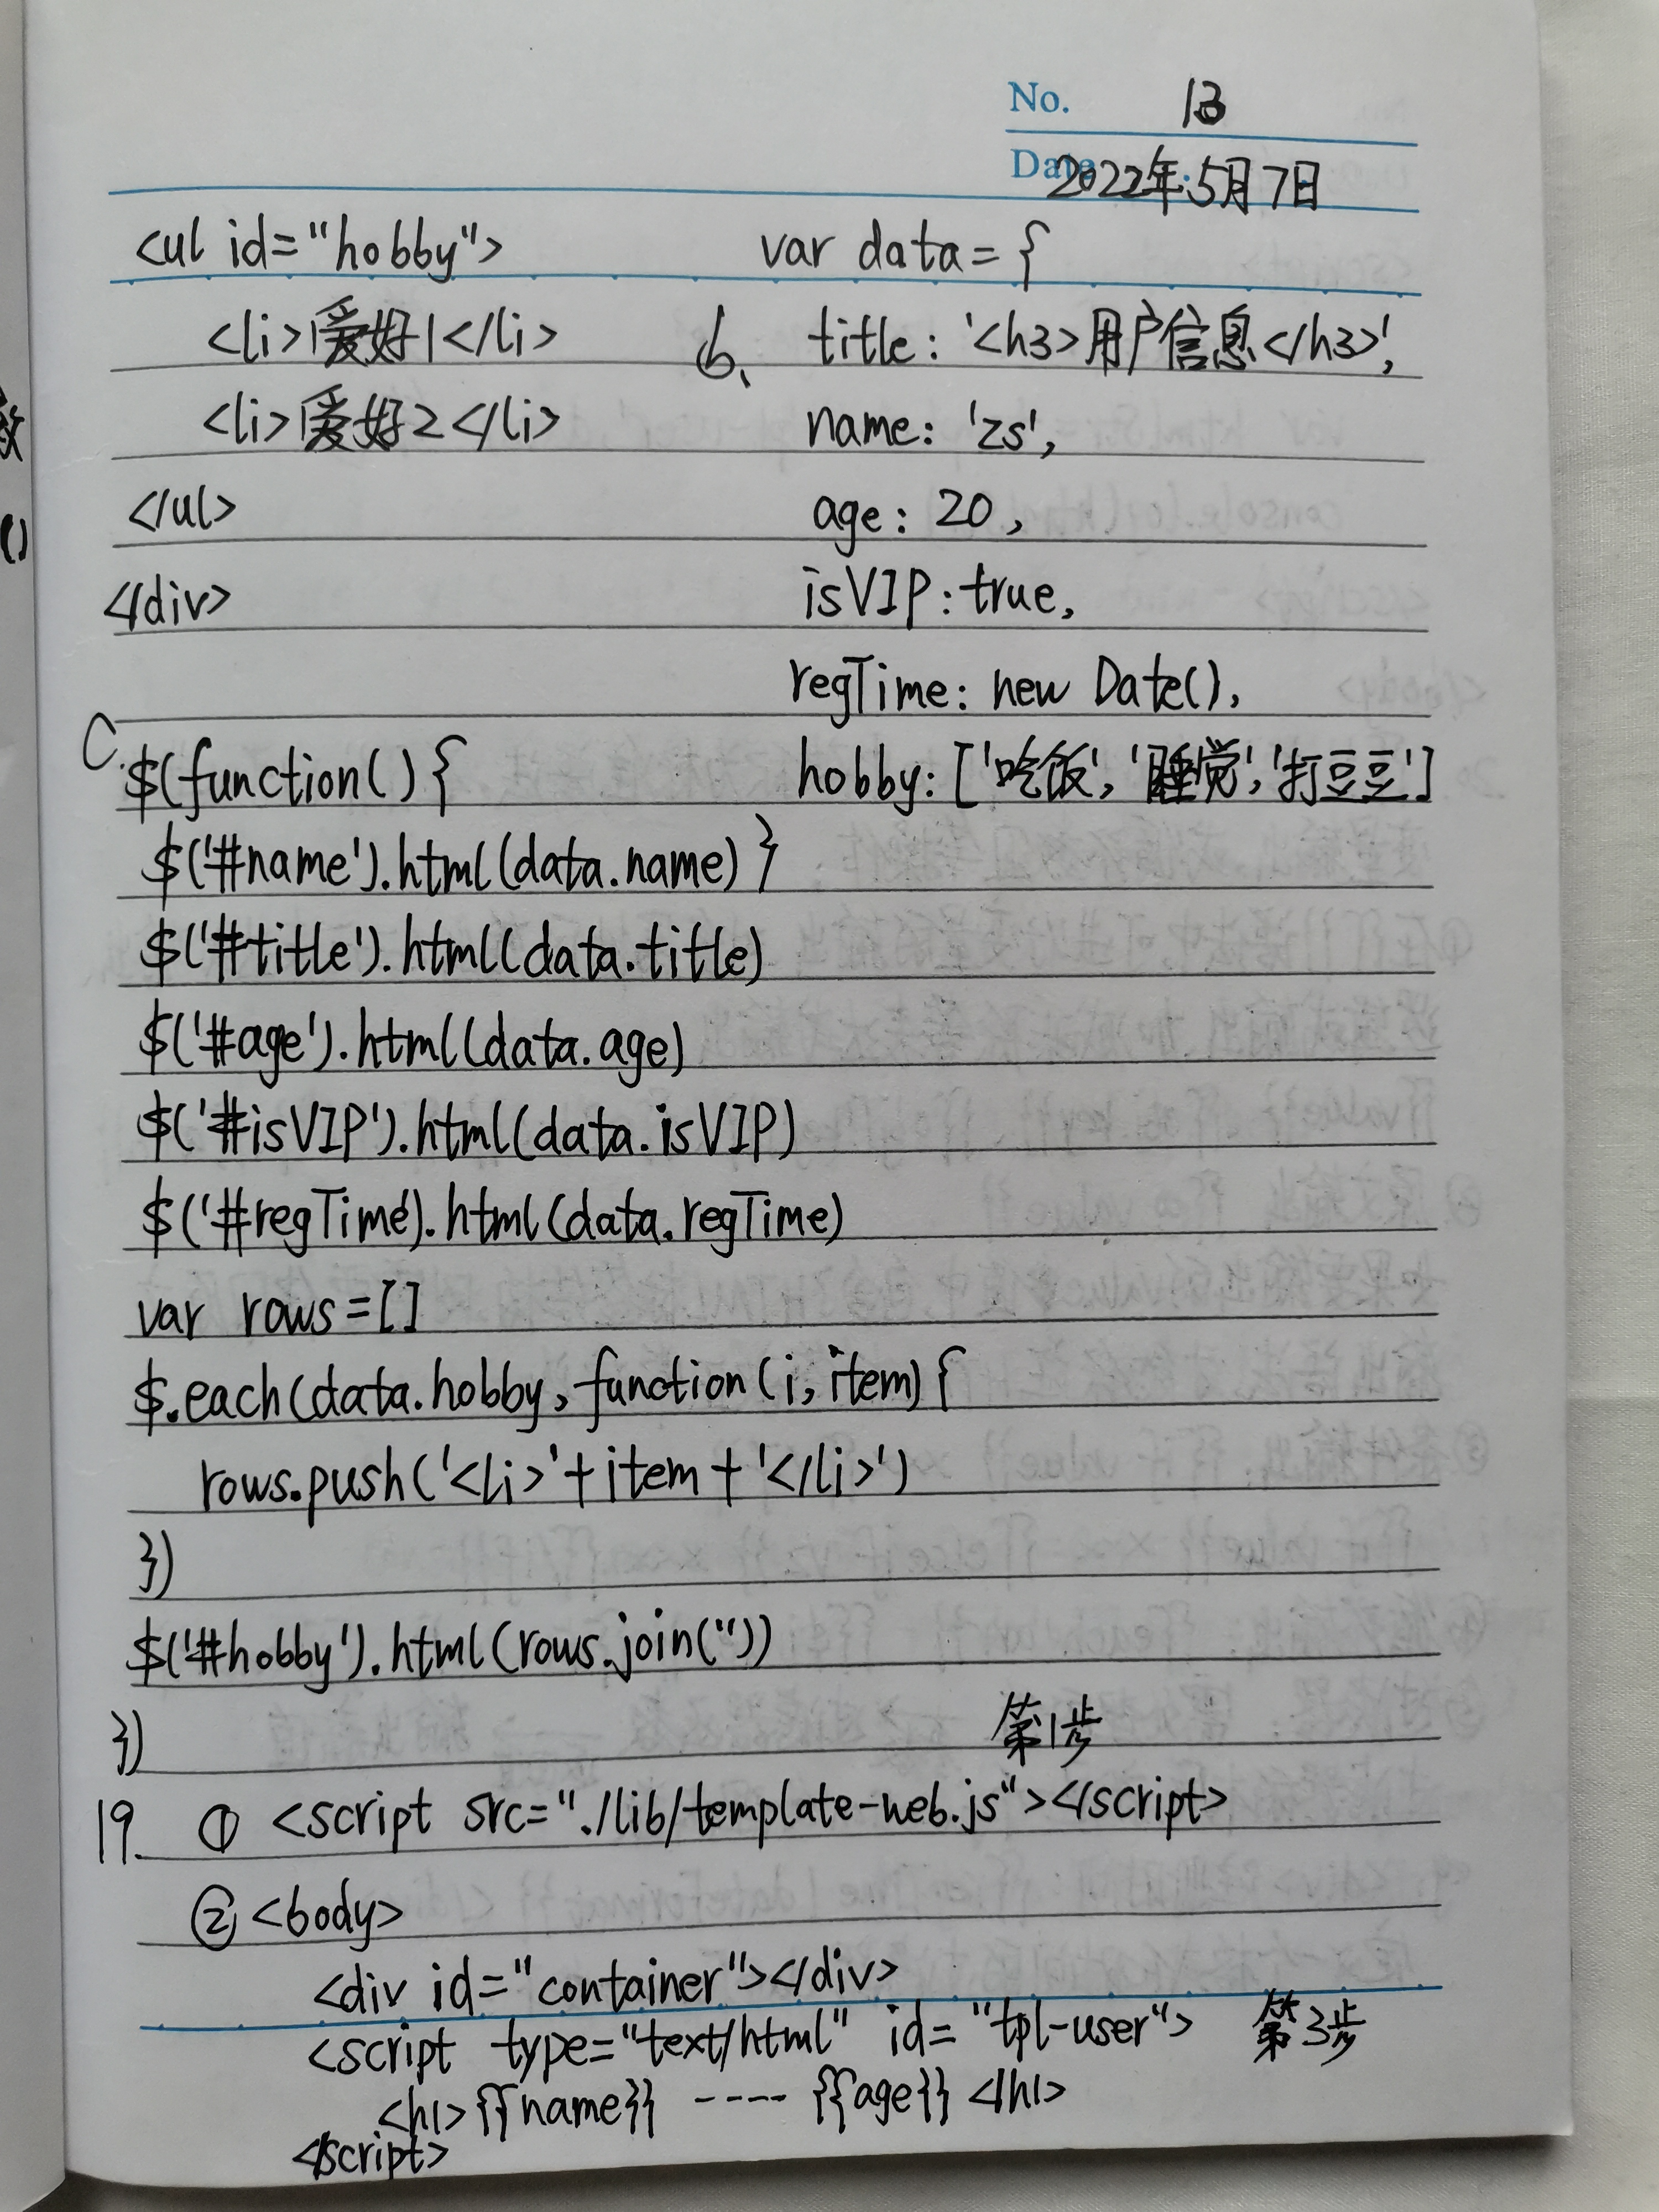 No. 13
Date 2022年5月7日
<ul id="hobby">
<li>爱好1</li>
<li>爱好2</li>
</ul>
</div>
var data={
b、 title: '<h3>用户信息</h3>',
name: 'zs',
age: 20,
isVIP: true,
regTime: new Date(),
hobby: ['吃饭', '睡觉', '打豆豆']
}
C. $(function(){
$('#name').html(data.name)
$('#title').html(data.title)
$('#age').html(data.age)
$('#isVIP').html(data.isVIP)
$('#regTime').html(data.regTime)
var rows=[]
$.each(data.hobby, function(i, item){
rows.push('<li>'+item+'</li>')
})
$('#hobby').html(rows.join(''))
})
第1步
19. ① <script src="./lib/template-web.js"></script>
② <body>
<div id="container"></div>
<script type="text/html" id="tpl-user"> 第3步
<h1>{{name}} ---- {{age}}</h1>
</script>